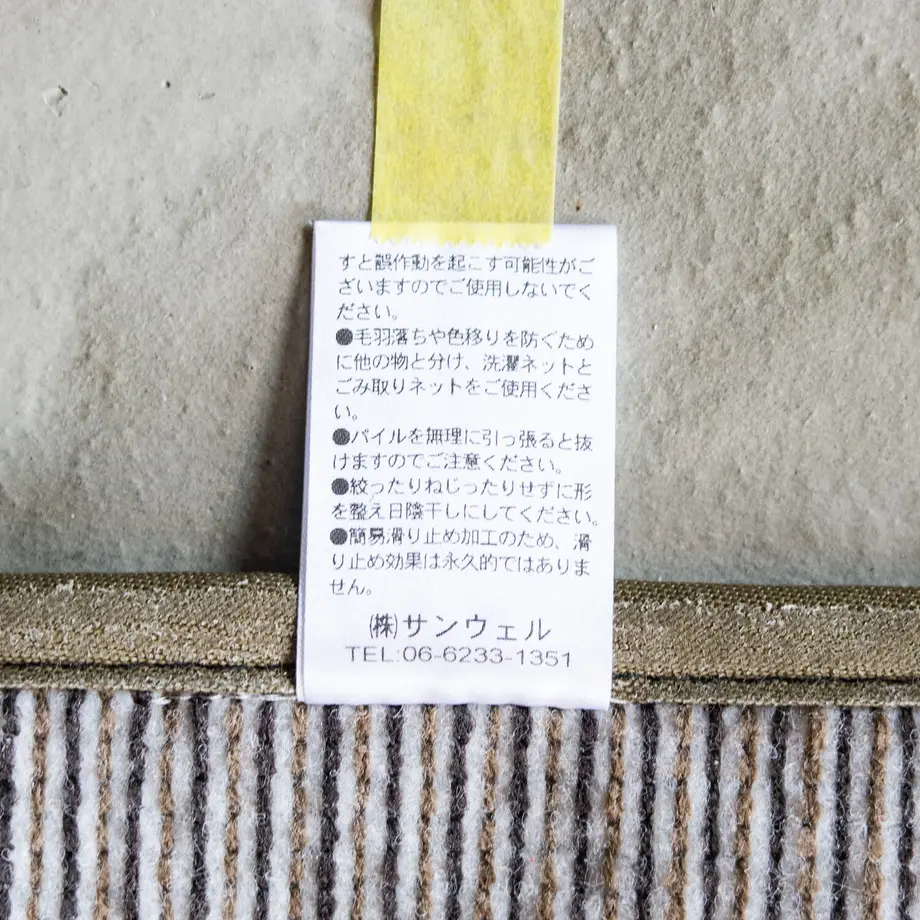 すと誤作動を起こす可能性がご
ざいますのでご使用しないでく
ださい。
●毛羽落ちや色移りを防ぐため
に他の物と分け、洗濯ネットと
ごみ取りネットをご使用くださ
い。
●パイルを無理に引っ張ると抜
けますのでご注意ください。
●絞ったりねじったりせずに形
を整え日陰干しにしてください。
●簡易滑り止め加工のため、滑
り止め効果は永久的ではありま
せん。
㈱サンウェル
TEL:06-6233-1351